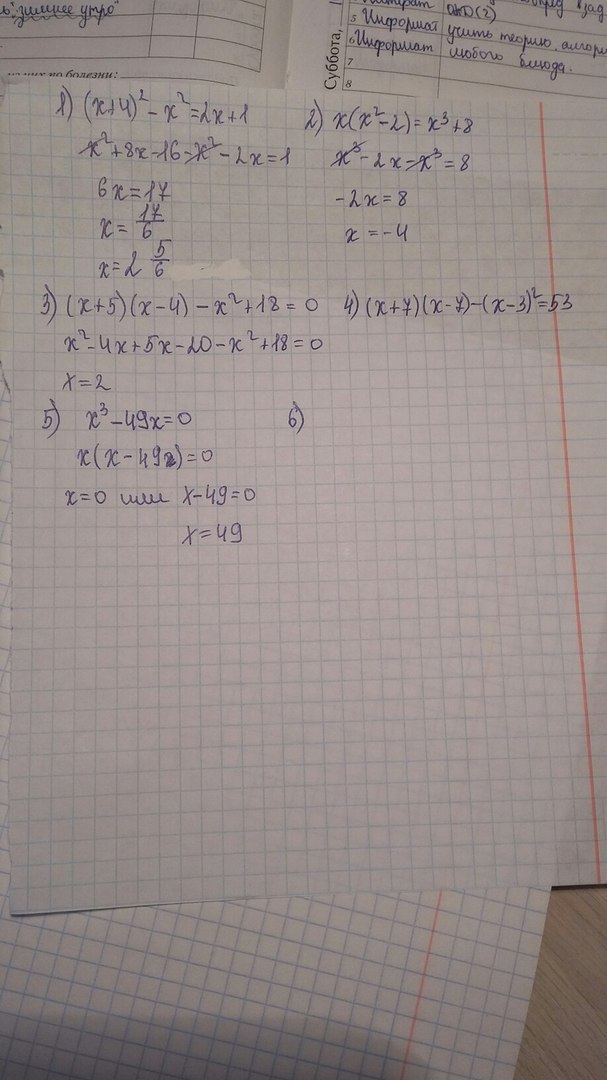 зимнее утро"
по болезни:
Суббота,
5 Информат учить теорию, алгори
6 Информат любого блюда.
7
8
1) (x+4)² - x² = 2x+1
x² + 8x - 16 - x² - 2x = 1
6x = 17
x = 17/6
x = 2 5/6
2) x(x²-2) = x³+8
x³ - 2x - x³ = 8
-2x = 8
x = -4
3) (x+5)(x-4) - x² + 18 = 0
x² - 4x + 5x - 20 - x² + 18 = 0
x = 2
4) (x+7)(x-7) - (x-3)² = 53
5) x³ - 49x = 0
x(x - 49x) = 0
x = 0 или x - 49 = 0
x = 49
6)